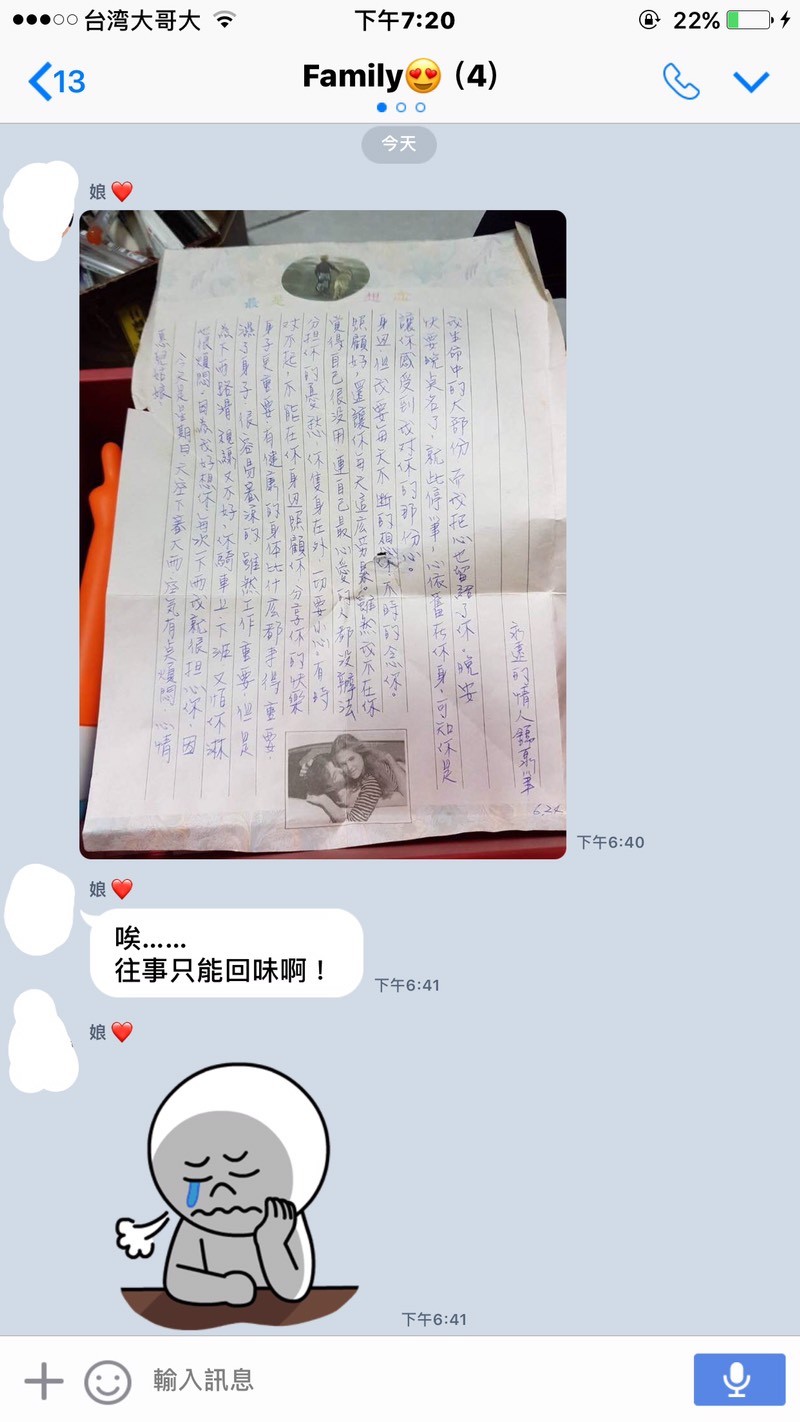 台湾大哥大
下午7:20
22%
13
Family😍 (4)
今天
娘❤️
最 是 想 念
姑娘
今天是星期日，天空下著大雨 空氣有点煩悶，心情
很煩悶，因為我好想你，每次一下雨我就很担心你，因
為下雨路滑 視線又不好，你騎車上下班 又怕你淋
溼了身子，很容易著涼的 雖然工作重要，但是
身子更重要，有健康的身体比什広都 得重要．
不起，不能在你身边照顧你 分享你的快樂
分担你的憂愁，你隻身在外，一切要小心，有時
覺得自己很没用 連自己最心愛的人都没辦法
照顧好，還讓你每天這広勞累。雖然我不在你
身边 但我要每天不断的想你 不時的念你。
讓你感受到我对你的那份心。
快要晚点名了，就此停筆，心依舊在你身，可知你是
我生命中的大部份 而我把心也留給了你。晚安
永遠的情人 筆
6.24
下午6:40
娘❤️
唉......
往事只能回味啊！
下午6:41
娘❤️
下午6:41
輸入訊息